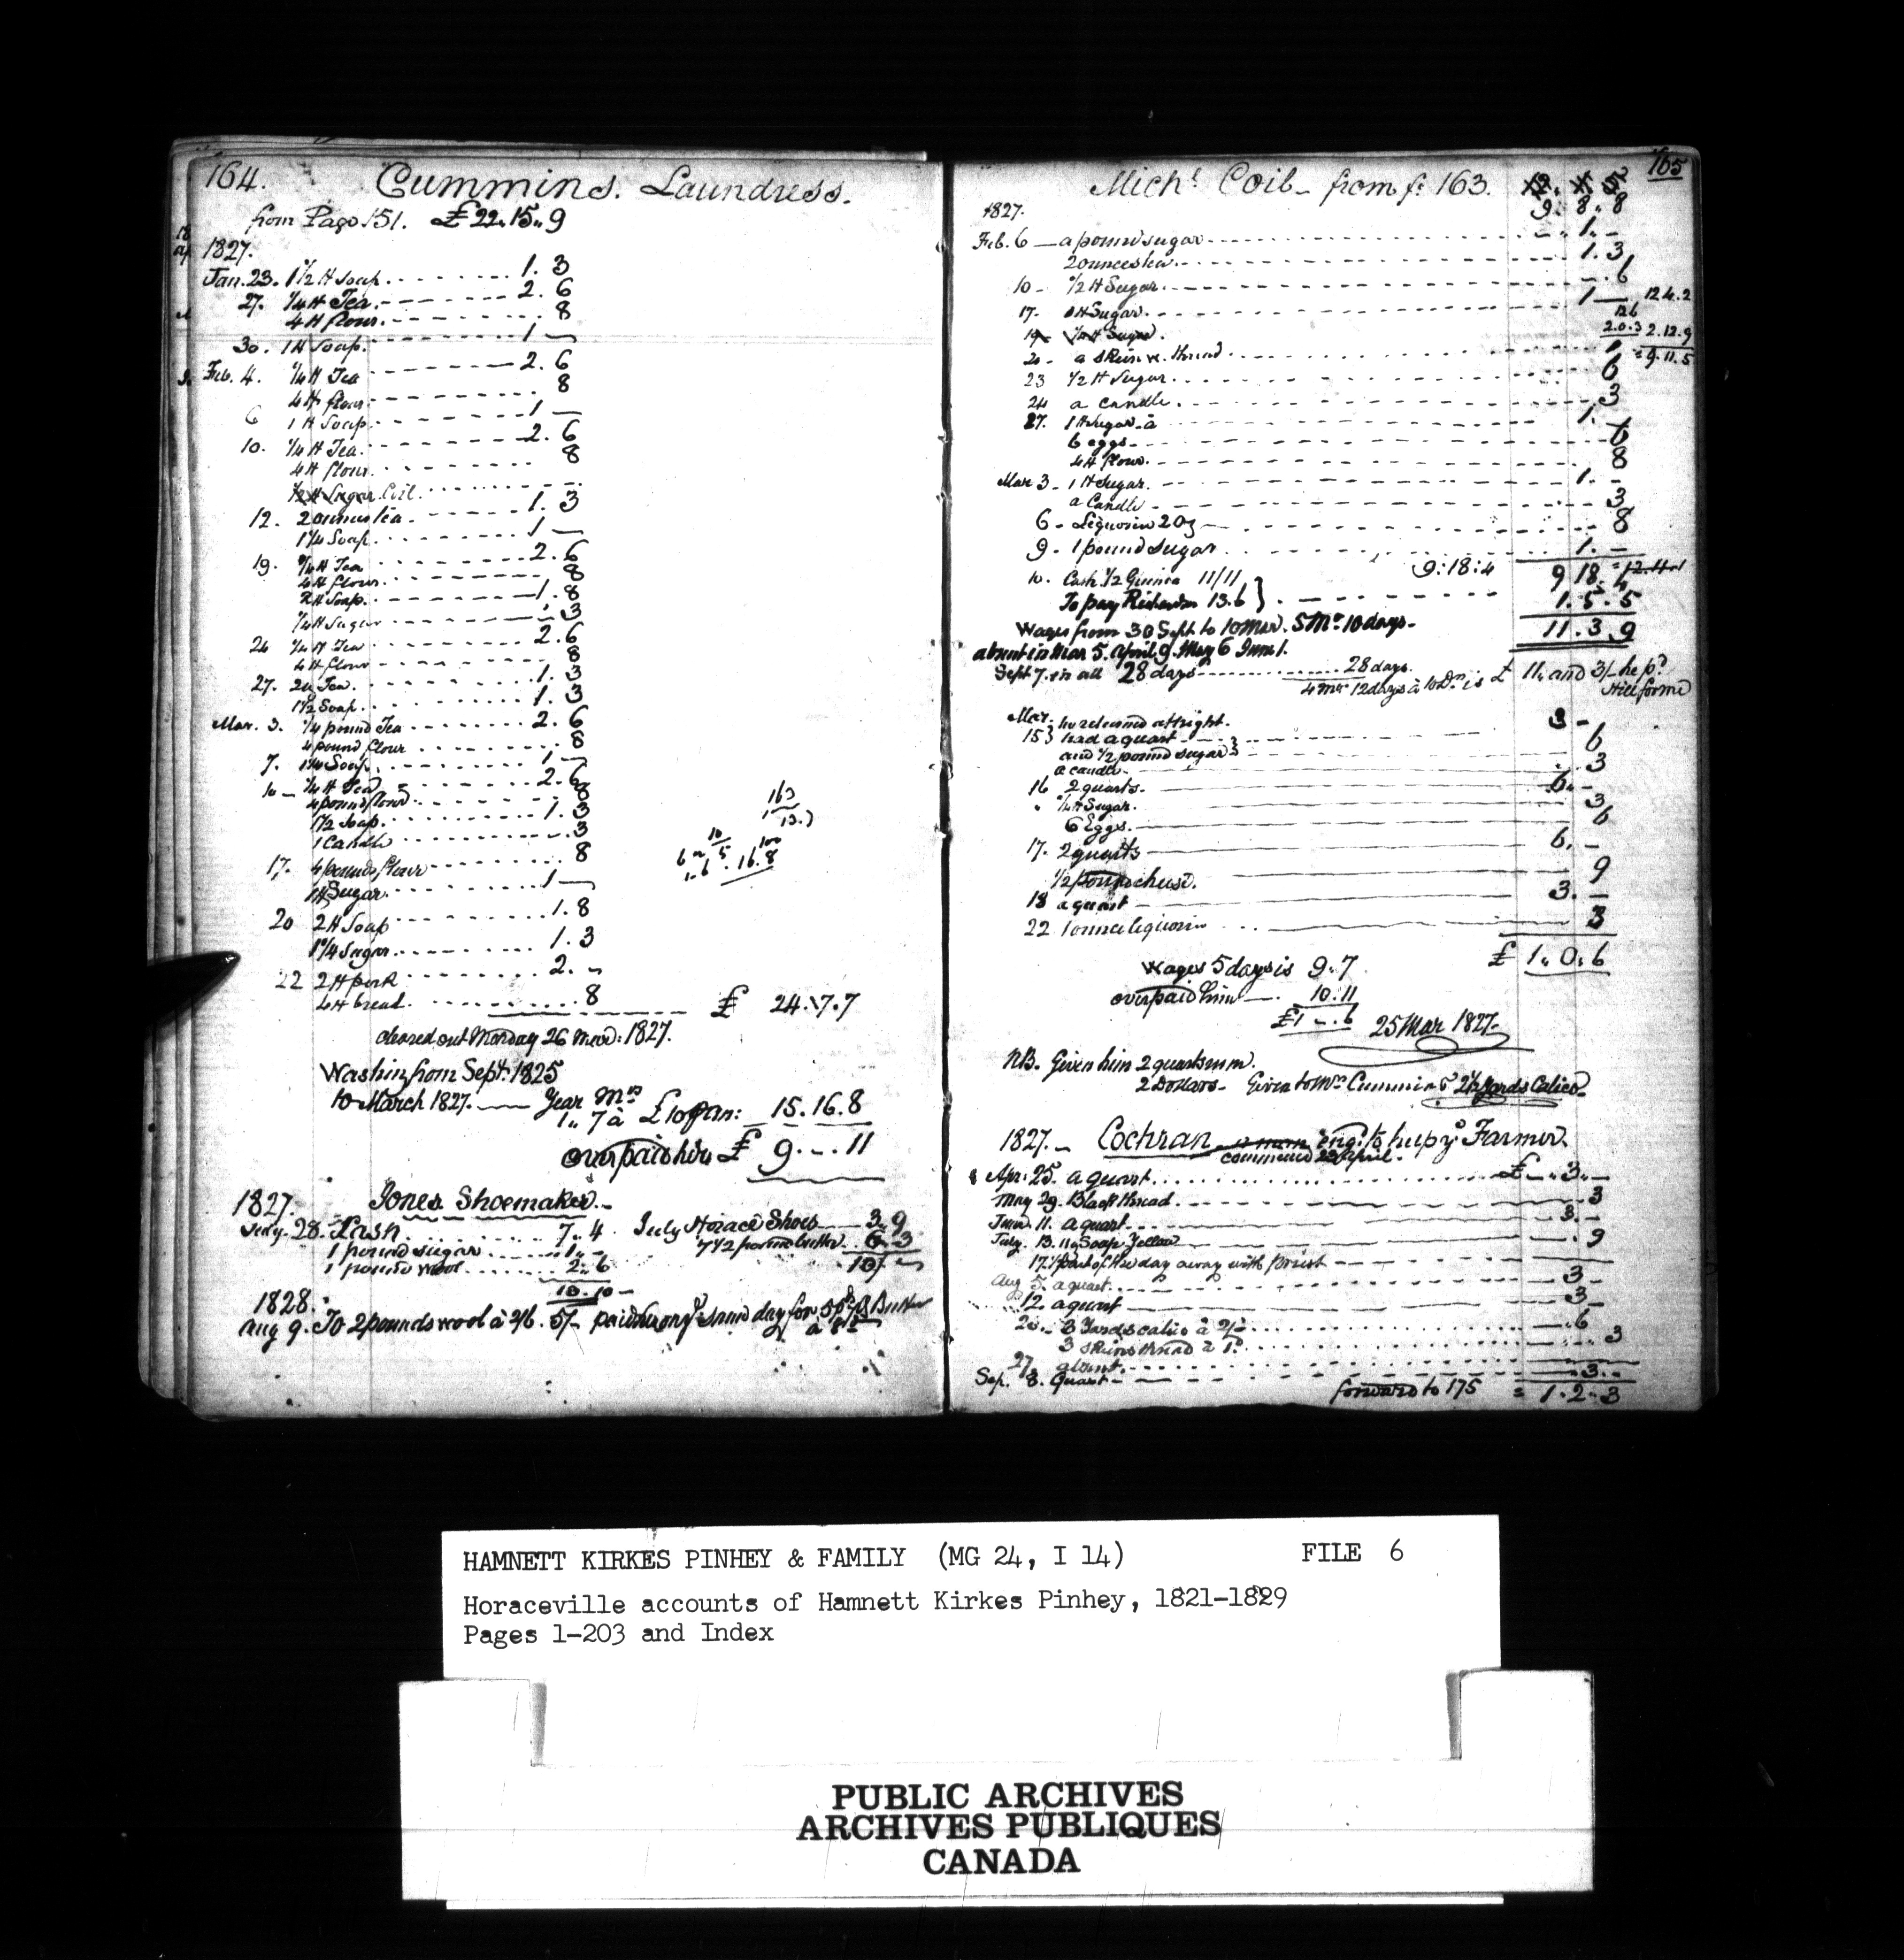 164. Cummins. Laundress.
from Page 151. £22.15.9
1827.
Jan. 23. 1 1/2 H Soap. 1. 3
27. 1/4 H Tea. 2. 6
4 H flour. 8
30. 1 H Soap. 1 —
Feb. 4. 1/4 H Tea 2. 6
4 H flour. 8
6 1 H Soap. 1 —
10. 1/4 H Tea. 2. 6
4 H flour. 8
1/2 H Sugar Coil.
12. 2 ounces tea. 1. 3
1 1/4 Soap. 1 —
19. 1/4 H Tea 2. 6
4 H flour 8
2 H Soap. 1. 8
1/4 H Sugar 3
24 1/4 H Tea 2. 6
4 H flour 8
27. 2 Tea. 1. 3
1 1/2 Soap. 1. 3
Mar. 3. 1/4 pound Tea 2. 6
4 pound flour 8
7. 1 1/4 Soap. 1 —
10 — 1/4 H Tea 2. 6
4 pound flour 8
1 1/2 Soap. 1. 3
1 Candle 3
17. 4 pounds flour 8
1 H Sugar. 1 —
20 2 H Soap 1. 8
1 1/4 Sugar 1. 3
22 2 H pork 2. —
4 H bread. 8 £ 24.17.7
163
10
6 5 16.8
cleared out Monday 26 Mar: 1827.
Washing from Sept. 1825
to March 1827. — Year Ms
1.. 7 à £10 p an: 15.16.8
overpaid him £ 9. - . 11
1827. Jones Shoemaker. -
July. 28. Cash 7. 4 July Horace Shoes 3. 9
1 pound sugar 1. - 7 1/2 pound butter 6. 3
1 pound wool 2. 6 10/ —
10. 10 —
1828.
Aug 9. To 2 pounds wool à 2/6. 5/- paid same day for Butter
165
Michl Coil - from f: 163.
1827. 9. 8.. 8
Feb. 6 — a pound sugar - .. 1. -
2 ounces tea. 1. 3
10 - 1/2 H Sugar. - . 6
17. 1 H Sugar. 1 — 12 4. 2
126
19 Sugar. 2. 0. 3 2.12.9
20 - a skein w. thread 1 = 9.11.5
23 1/2 H Sugar. 6
24 a Candle. 3
27. 1 H Sugar - à 1.
6 eggs - 6
4 H flour. 8
Mar 3 - 1 H Sugar. 1. -
a Candle 3
6 - Liquorice 2 oz 8
9 - 1 pound sugar 1. -
9 : 18 : 4 9 18. 4
10. Cash 1/2 Guinea 11/11
To pay Richardson 13.6 } 1. 5. 5
11. 3. 9
Wages from 30 Sept. to 10 Mar. 5 Ms 10 days -
absent in Mar 5. April 9. May 6 June 1.
Sept 7. in all 28 days 28 days.
4 Ms 12 days à 10 Drs is £ 11. and 3/- he pd
Mar. he returned at night.
15 } had a quart 3 -
and 1/2 pound sugar } 6
a candle - 3
16 2 quarts. 6. -
" 1/4 H Sugar. 3
6 Eggs. 6
17. 2 quarts 6. -
1/2 pound cheese. 9
18 a quart 3. -
22 1 ounce liquorice 3
£ 1. 0. 6
Wages 5 days is 9. 7
overpaid him — 10. 11
£1 - . 6 25 Mar 1827.
NB. Given him 2 quarts rum.
2 Dollars - Given to Mrs Cummins 2 1/2 Yards Calico
1827. - Cochran eng: to keep ye Farmer.
commenced 23 April.
Apr. 25. a quart £ - .. 3.. -
May 29. Black thread. 3
June. 11. a quart 3. -
July. 13. Soap Yellow 9
17. part of the day away with priest
Aug 5. a quart. 3 -
12. a quart 3 -
20. - 3 Yards calico à 2/- 6
3 skeins thread à 1d. 3
27 absent.
Sep. 8. Quart - 3. -
forward to 175 = 1. 2. 3
HAMNETT KIRKES PINHEY & FAMILY (MG 24, I 14) FILE 6
Horaceville accounts of Hamnett Kirkes Pinhey, 1821-1829
Pages 1-203 and Index
PUBLIC ARCHIVES
ARCHIVES PUBLIQUES
CANADA